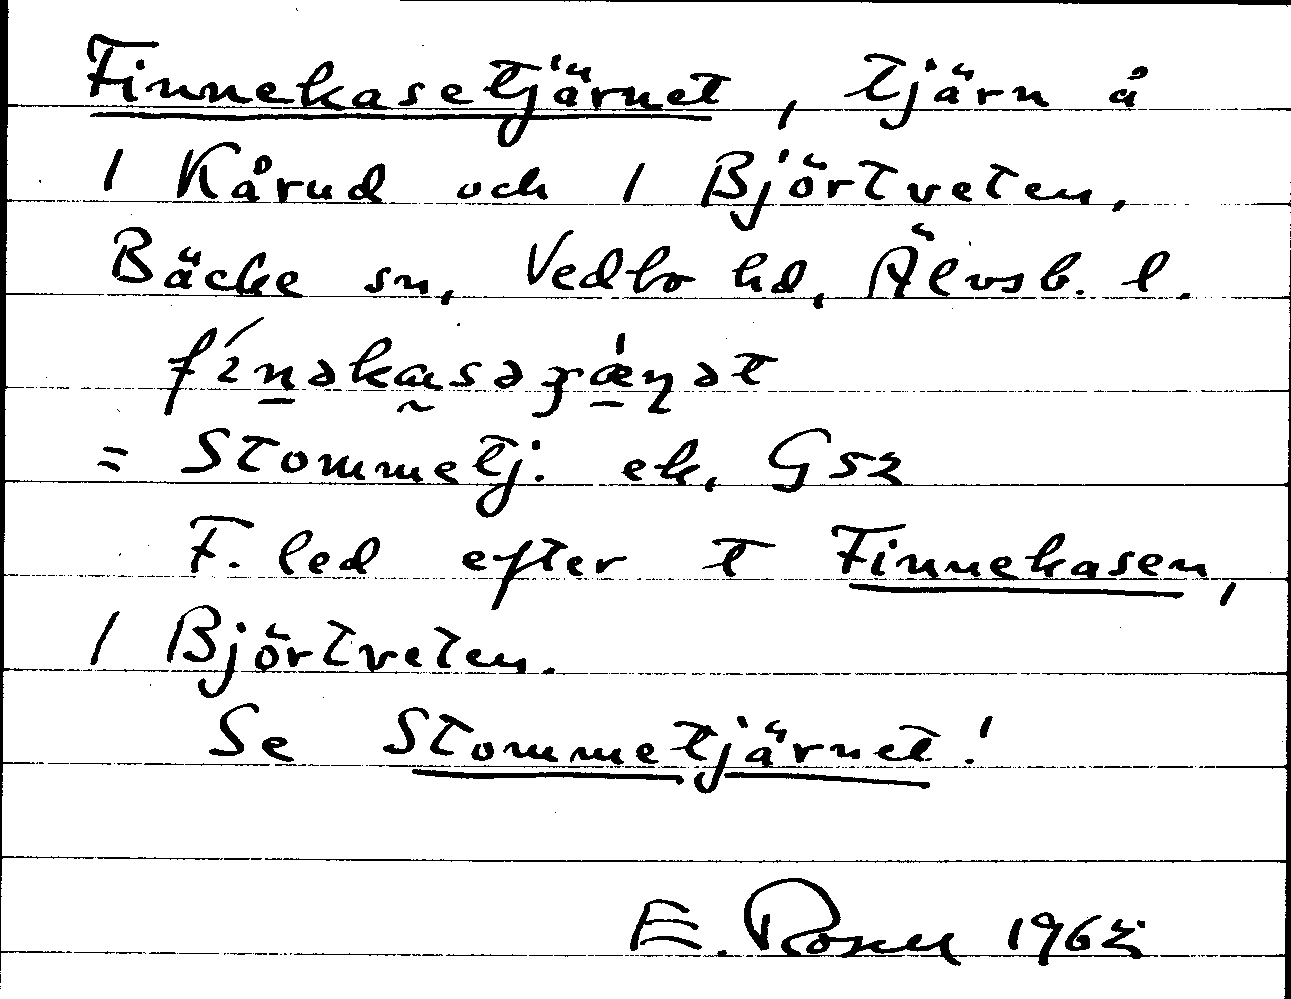 Finnekasetjärnet, tjärn å
1 Kårud och 1 Björtveten,
Bäcke sn, Vedbo hd, Älvsb. l.
= Stommetj. ek, G52
F. led efter t Finnekasen,
1 Björtveten.
Se Stommetjärnet!
E. Rosell 1962